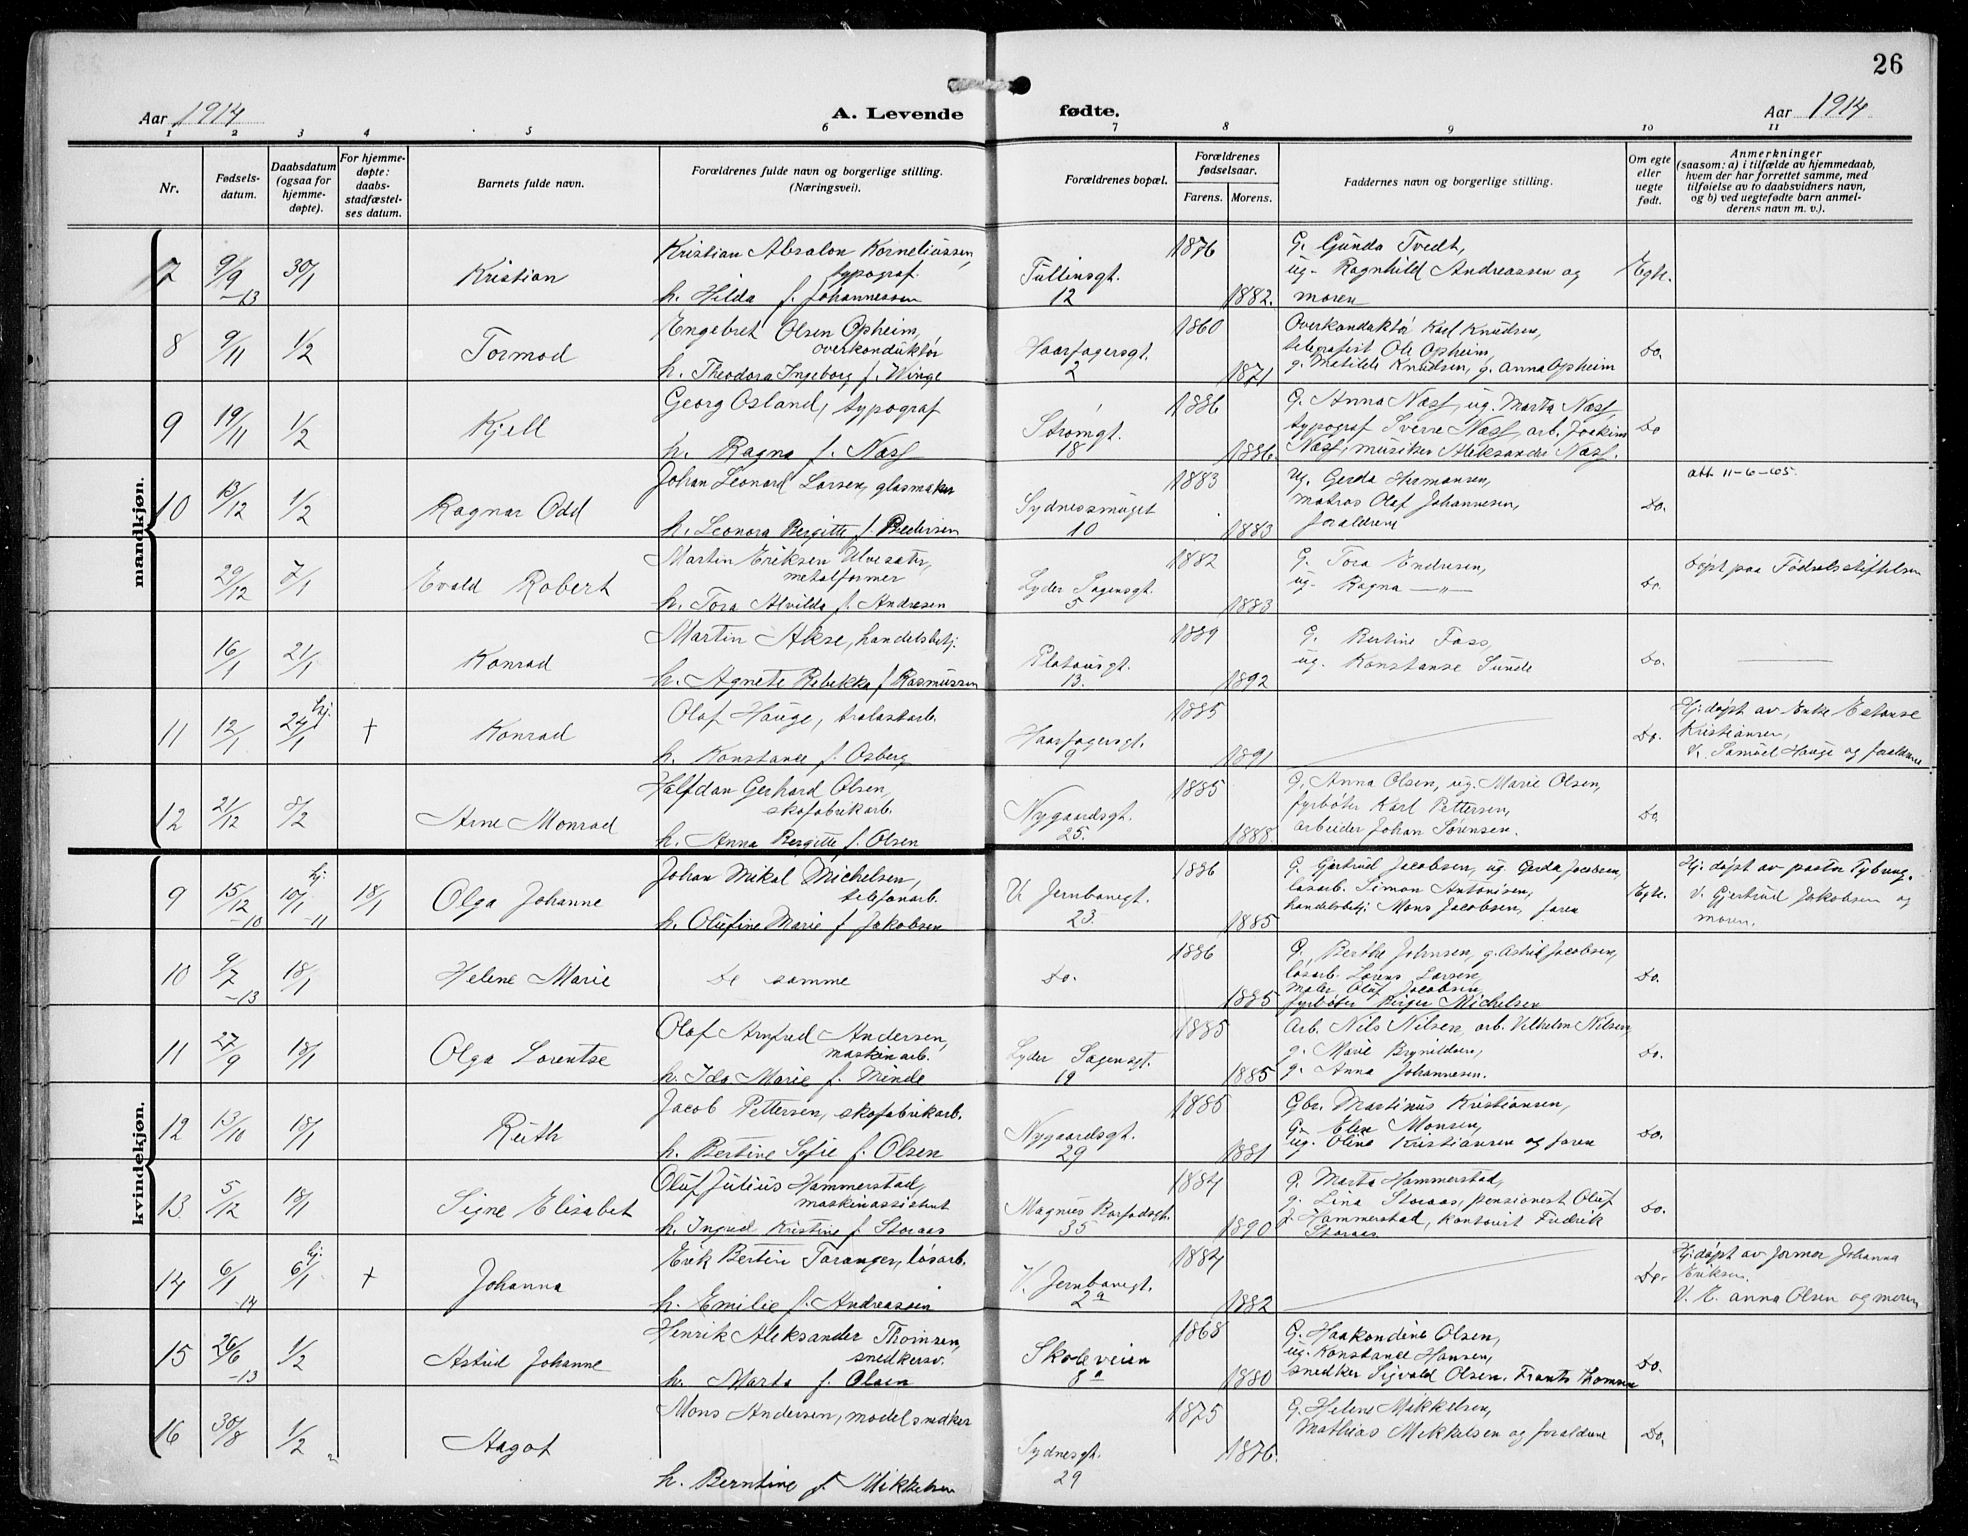 26
Aar 1914
A. Levende fødte.
Aar 1914
1 2 3 4 5 6 7 8 9 10 11
Nr.
Fødsels-
datum.
Daabsdatum
(ogsaa for
hjemme-
døpte).
For hjemme-
døpte:
daabs-
stadfæstel-
ses datum.
Barnets fulde navn.
Forældrenes fulde navn og borgerlige stilling.
(Næringsvei).
Forældrenes bopæl.
Forældrenes
fødselsaar.
Farens. Morens.
Faddernes navn og borgerlige stilling.
Om egte
eller
uegte
født.
Anmerkninger
(saasom: a) i tilfælde av hjemmedaab,
hvem der har forrettet samme, med
tilføielse av to daabsvidners navn,
og b) ved uegtefødte barn anmel-
derens navn m. v.).
mandkjøn.
7 9/9 -13 30/1 Kristian
Kristian Absalon Korneliussen,
typograf
h. Hilda f. Johannessen
Tullinsgt.
12
1876 1882.
G. Gunda Tvedt,
ug. Ragnhild Andreassen og
moren
Egte.
8 9/11 1/2 Tormod
Engebret Olsen Opheim,
overkonduktør
h. Theodora Ingeborg f. Winge
Haarfagersgt.
2
1860 1871
Overkonduktør Karl Knudsen,
telegrafist Ole Opheim,
g. Matilde Knudsen, g. Anna Opheim
Do.
9 19/11 1/2 Kjell
Georg Osland, typograf
h. Ragna f. Næss
Strømgt.
18
1886 1886.
G. Anna Næss, ug. Marta Næss,
typograf Sverre Næss, arb. Joakim
Næss, musiker Aleksander Næss.
Do
10 13/12 1/2 Ragnar Odd
Johan Leonard Larsen, glasmaker
h. Leonora Bergitte f. Pedersen
Sydnessmuget
10
1883 1883
Ug. Gerda Hermansen,
matros Olaf Johannesen,
forældrene
Do.
att. 11-6-65.
29/12 7/1 Evald Robert
Martin Eriksen Ulvesæter,
metalformer
h. Tora Alvilda f. Andresen
Lyder Sagensgt.
5
1882 1883
G. Tora Andresen,
ug. Ragna —"—
Do.
Døpt paa Fødselsstiftelsen
16/1 21/1 Konrad
Martin Akse, handelsbetj.
h. Agnete Rebekka f. Rasmussen
Platousgt.
13.
1889 1892
G. Bertine Foss,
ug. Konstanse Sunde
Do.
11 12/1 hj. 24/1 † Konrad
Olaf Hauge, trælastarb.
h. Konstance f. Osberg
Haarfagersgt.
9
1885 1891
Do.
Hj. døpt av Enke
Kristiansen,
V. Samuel Hauge og forældrene
12 21/12 8/2 Arne Monrad
Halfdan Gerhard Olsen,
skofabrikarb.
h. Anna Bergitte f. Olsen
Nygaardsgt.
25.
1885 1888.
G. Anna Olsen, ug. Marie Olsen,
fyrbøter Karl Pettersen,
arbeider Johan Sørensen.
Do
kvindekjøn.
9 15/12 -10 hj. 10/1 -11 18/1 Olga Johanne
Johan Mikal Michelsen,
telefonarb.
h. Olufine Marie f. Jakobsen
V. Jernbanegt.
23.
1886 1885
G. Gertrud Jacobsen, ug. Gerda Jacobsen,
løsarb. Simon Antonisen,
handelsbetj. Mons Jacobsen, faren
Egte.
Hj. døpt av pastor Tybring.
V. Gjertrud Jakobsen og
moren.
10 9/7 -13 18/1 Helene Marie
De samme
Do.
1886 1885
G. Berthe Johnsen, g. Astrid Jacobsen,
løsarb. Lorens Larsen,
Maler Oluf Jacobsen,
fyrbøter Birger Michelsen
Do.
11 27/9 18/1 Olga Lorentse
Olaf Arnfred Andersen,
maskinarb.
h. Ida Marie f. Minde
Lyder Sagensgt.
19
1885 1885
Arb. Nils Nilsen, arb. Vilhelm Nilsen,
g. Marie Brynildsen,
g. Anna Johannesen.
Do.
12 13/10 18/1 Ruth
Jacob Pettersen, skofabrikarb.
h. Bertine Sofie f. Olsen
Nygaardsgt.
29
1886 1881
Gbr. Martinus Kristiansen,
G. Elen Monsen,
ug. Oline Kristiansen og faren
Do.
13 5/12 18/1 Signe Elisabet
Oluf Julius Hammerstad,
maskinassistent
h. Ingrid Kristine f. Storaas
Magnus Barfodsgt.
35
1884 1890
G. Marta Hammerstad,
g. Lina Storaas, pensionert Oluf
J. Hammerstad, kontorist Fredrik
Storaas
Do.
14 6/1 -14 hj. 6/1 † Johanna
Erik Bertin Taranger, løsarb.
h. Emilie f. Andreassen
V. Jernbanegt.
2a
1884 1882
Do.
Hj. døpt av jormor Johanna
Eriksen.
V. E. Anna Olsen og moren
15 26/6 -13 1/2 Astrid Johanne
Henrik Aleksander Thomsen,
snedkersv.
h. Marta f. Olsen
Skoleveien
8a
1868 1880
G. Haakondine Olsen,
ug. Konstance Hansen,
snedker Sigvald Olsen, Frants Thomsen
Do.
16 30/8 1/2 Aagot
Mons Andersen, modelsnedker
h. Berntine f. Mikkelsen
Sydnesgt.
29
1875 1876.
G. Helene Mikkelsen,
Mathias Mikkelsen og forældrene
Do.